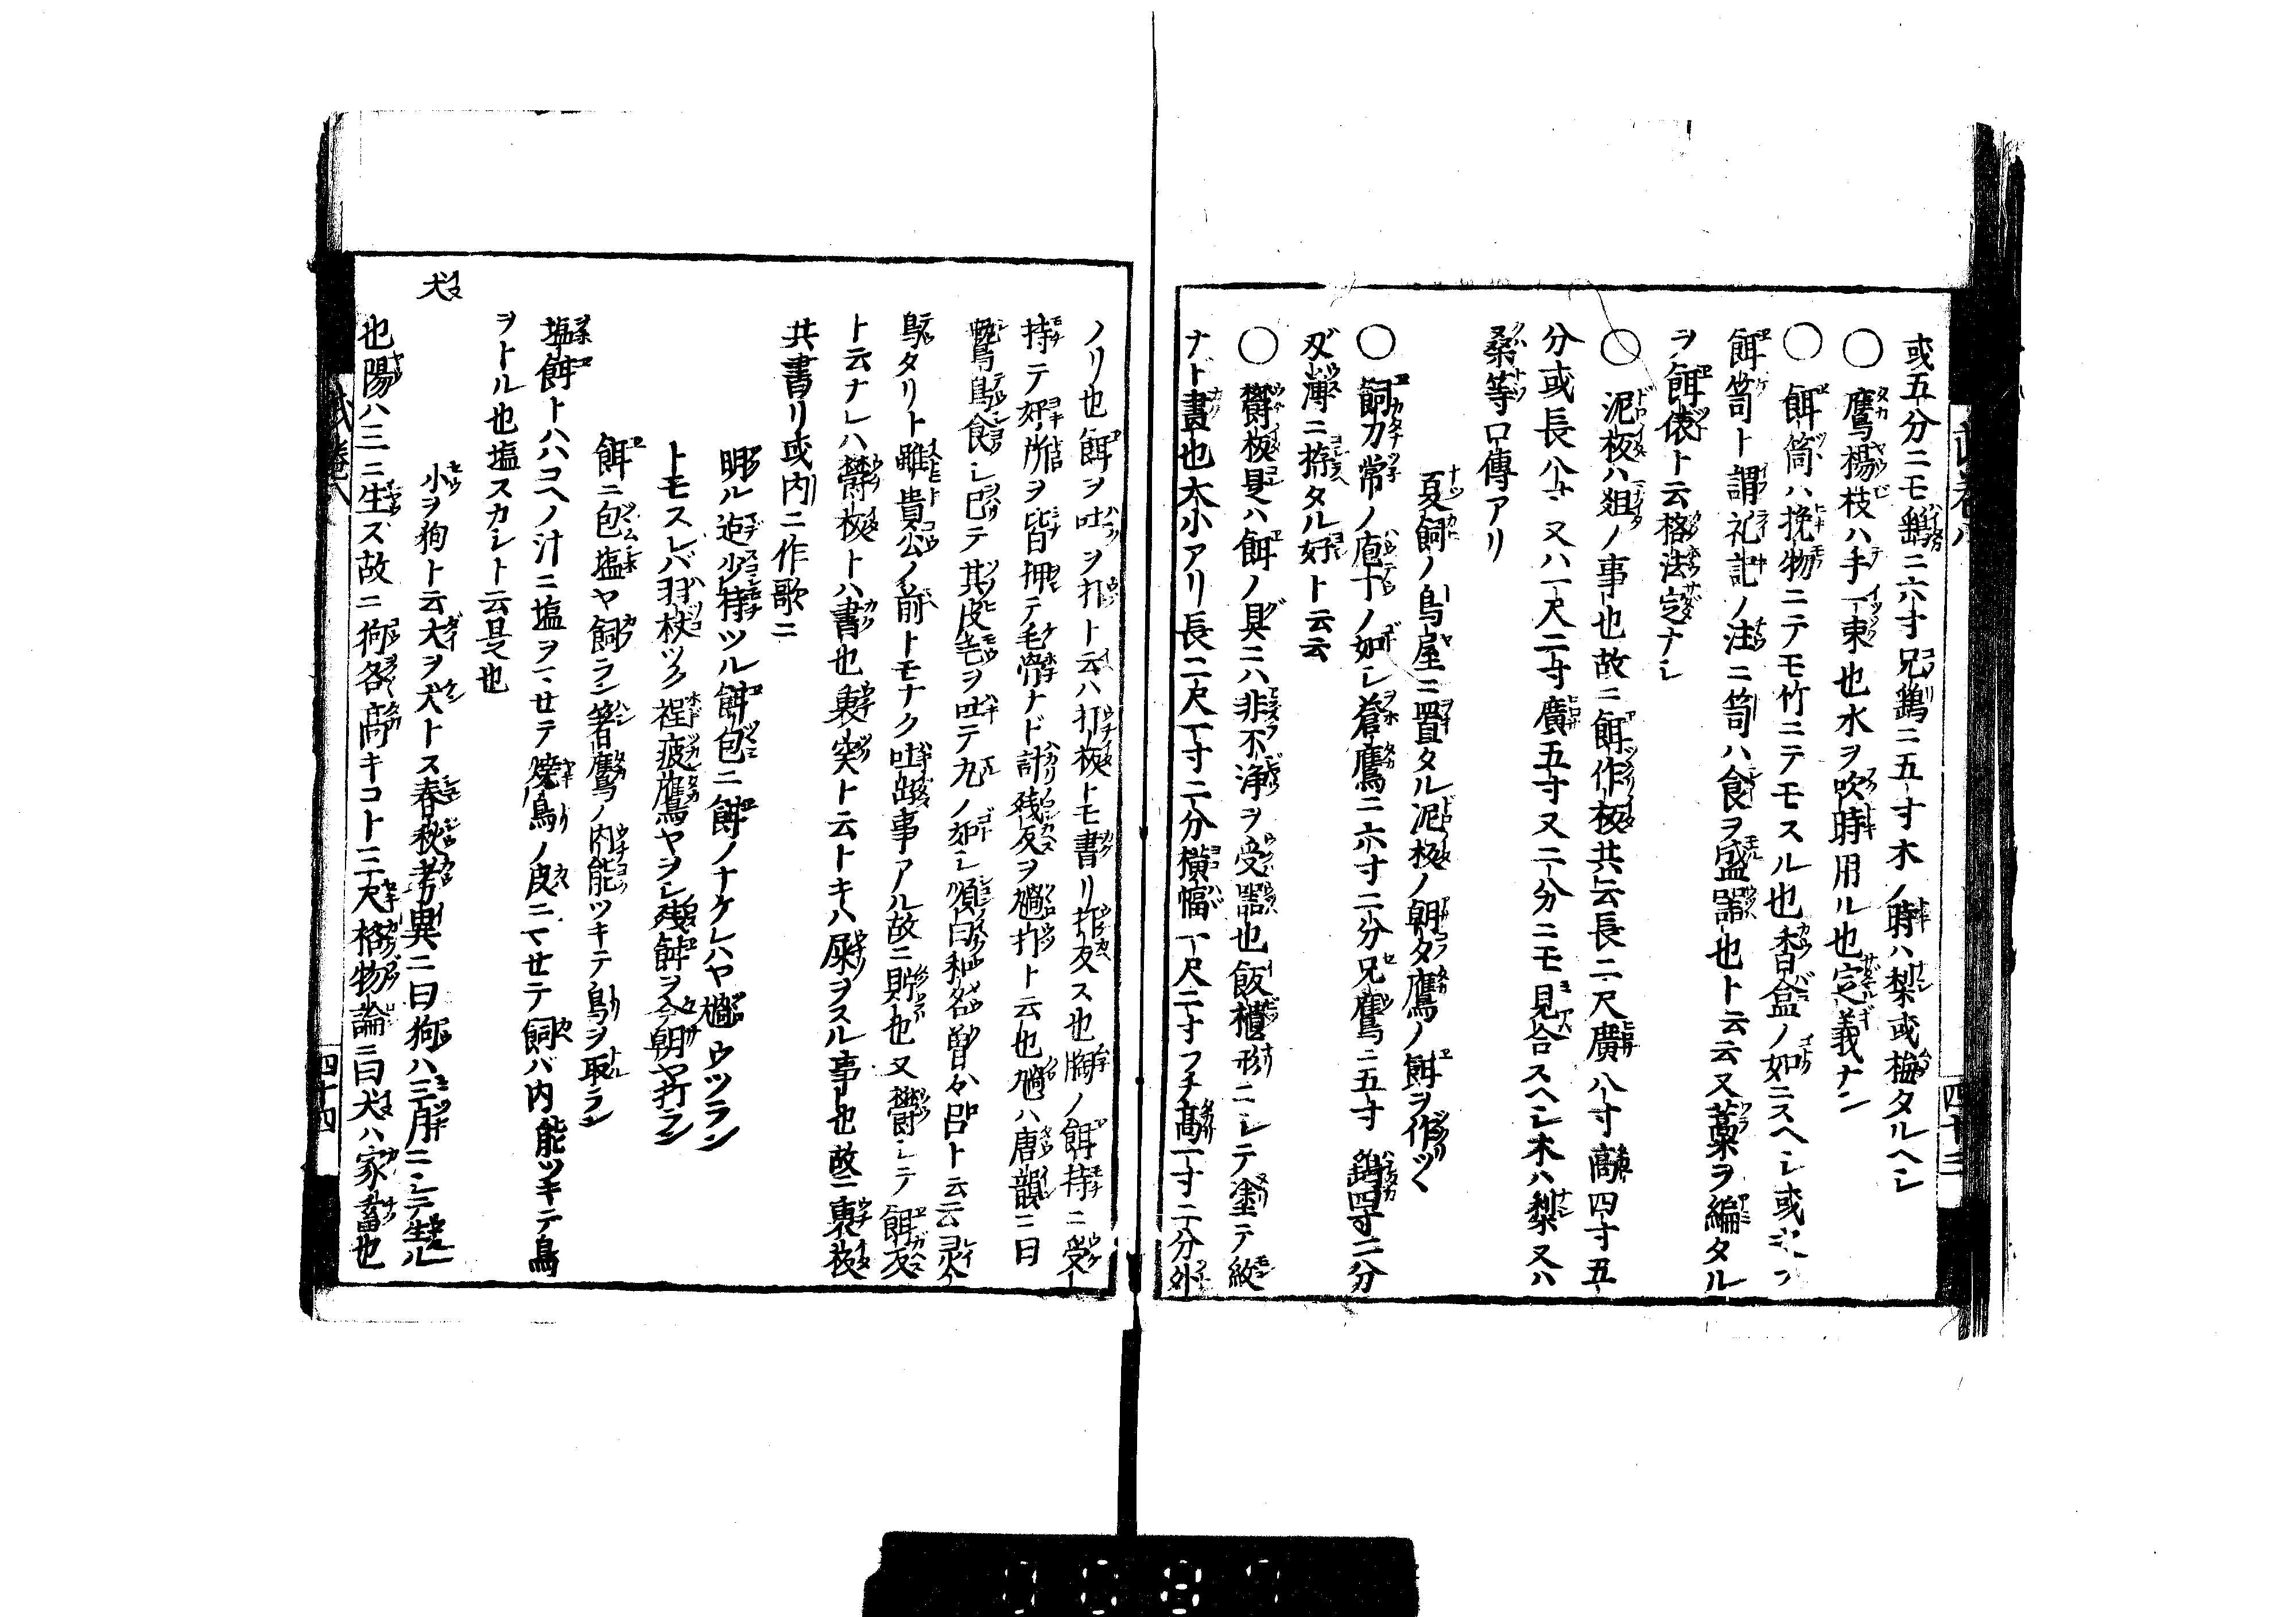 或五分ニモ鷂ニ六寸兄鷂ニ五寸木ノ時ハ梨或梅タルヘシ
○鷹楊枝ハ手一束也水ヲ吹時用ル也定義ナシ
○餌筒ハ挽物ニテモ竹ニテモスル也香盒ノ如ニスヘシ或
餌笥ト謂礼記ノ注ニ笥ハ食ヲ盛器也ト云云又藁ヲ編タル
ヲ餌俵ト云格法定ナシ
○泥板ハ俎ノ事也故ニ餌作板共云長二尺廣八寸高四寸五
分或長八寸又ハ一尺二寸廣五寸又二分ニモ見合スヘシ木ハ梨又ハ
桑等口傳アリ
夏飼ノ鳥屋ニ置タル泥板ノ朝タ鷹ノ餌ヲ作ツヽ
○飼刀常ノ庖丁ノ如シ蒼鷹ニ六寸二分兄鷹ニ五寸鷂四寸二分
刄薄ニ拵タル好ト云云
○欝板是ハ餌ノ具ニハ非不浄ヲ受器也飯櫃形ニシテ塗テ紋
ナド畫也大小アリ長二尺一寸二分横幅一尺二寸フチ高一寸二分外
ノリ也餌ヲ吐ヲ打ト云ハ打板トモ書リ打反ス也胸ノ餌持ニ受
持テ好所ヲ皆押テ毛骨ナド計残反ヲ打ト云也ハ唐韻ニ曰
鷙鳥食シ已テ其皮毛ヲ吐テ丸ノ如シ順曰和名曽々呂ト云云
タリト雖貴公ノ前トモナク吐出事アル故ニ貯也又欝シテ餌反
ト云ナレハ欝板トハ書也裏突ト云トキハ屎ヲスル事也故ニ裏板
共書リ或内ニ作歌ニ
明ル迠少持ツル餌包ニ餌ノナケレハヤウツラン
トモスレバ羽杖ツク程疲鷹ヤヲレ残餌ヲ今朝ヤ打ラン
餌ニ包塩ヤ飼ラン箸鷹ノ内能ツキテ鳥ヲ取ラン
塩餌トハハコヘノ汁ニ塩ヲマセテ焼鳥ノ皮ニマセテ飼バ内能ツキテ鳥
ヲトル也塩スカシト云是也
犬
小ヲ狗ト云大ヲ犬トス春秋考異ニ曰狗ハ三月ニシテ生ル
也陽ハ三ニ生ズ故ニ狗各高キコト三尺格物論ニ曰犬ハ家畜也
四十四